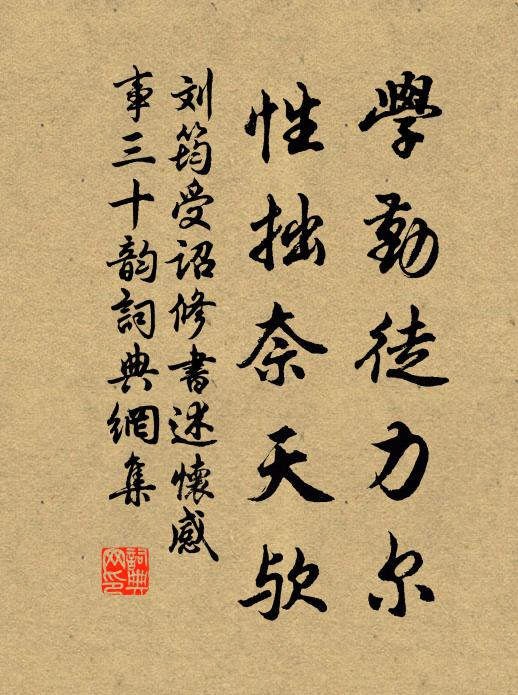 學勤徒力尔
性拙奈天欤
刘筠受诏修書述懷感
事三十韵詞典網集
詞典網印